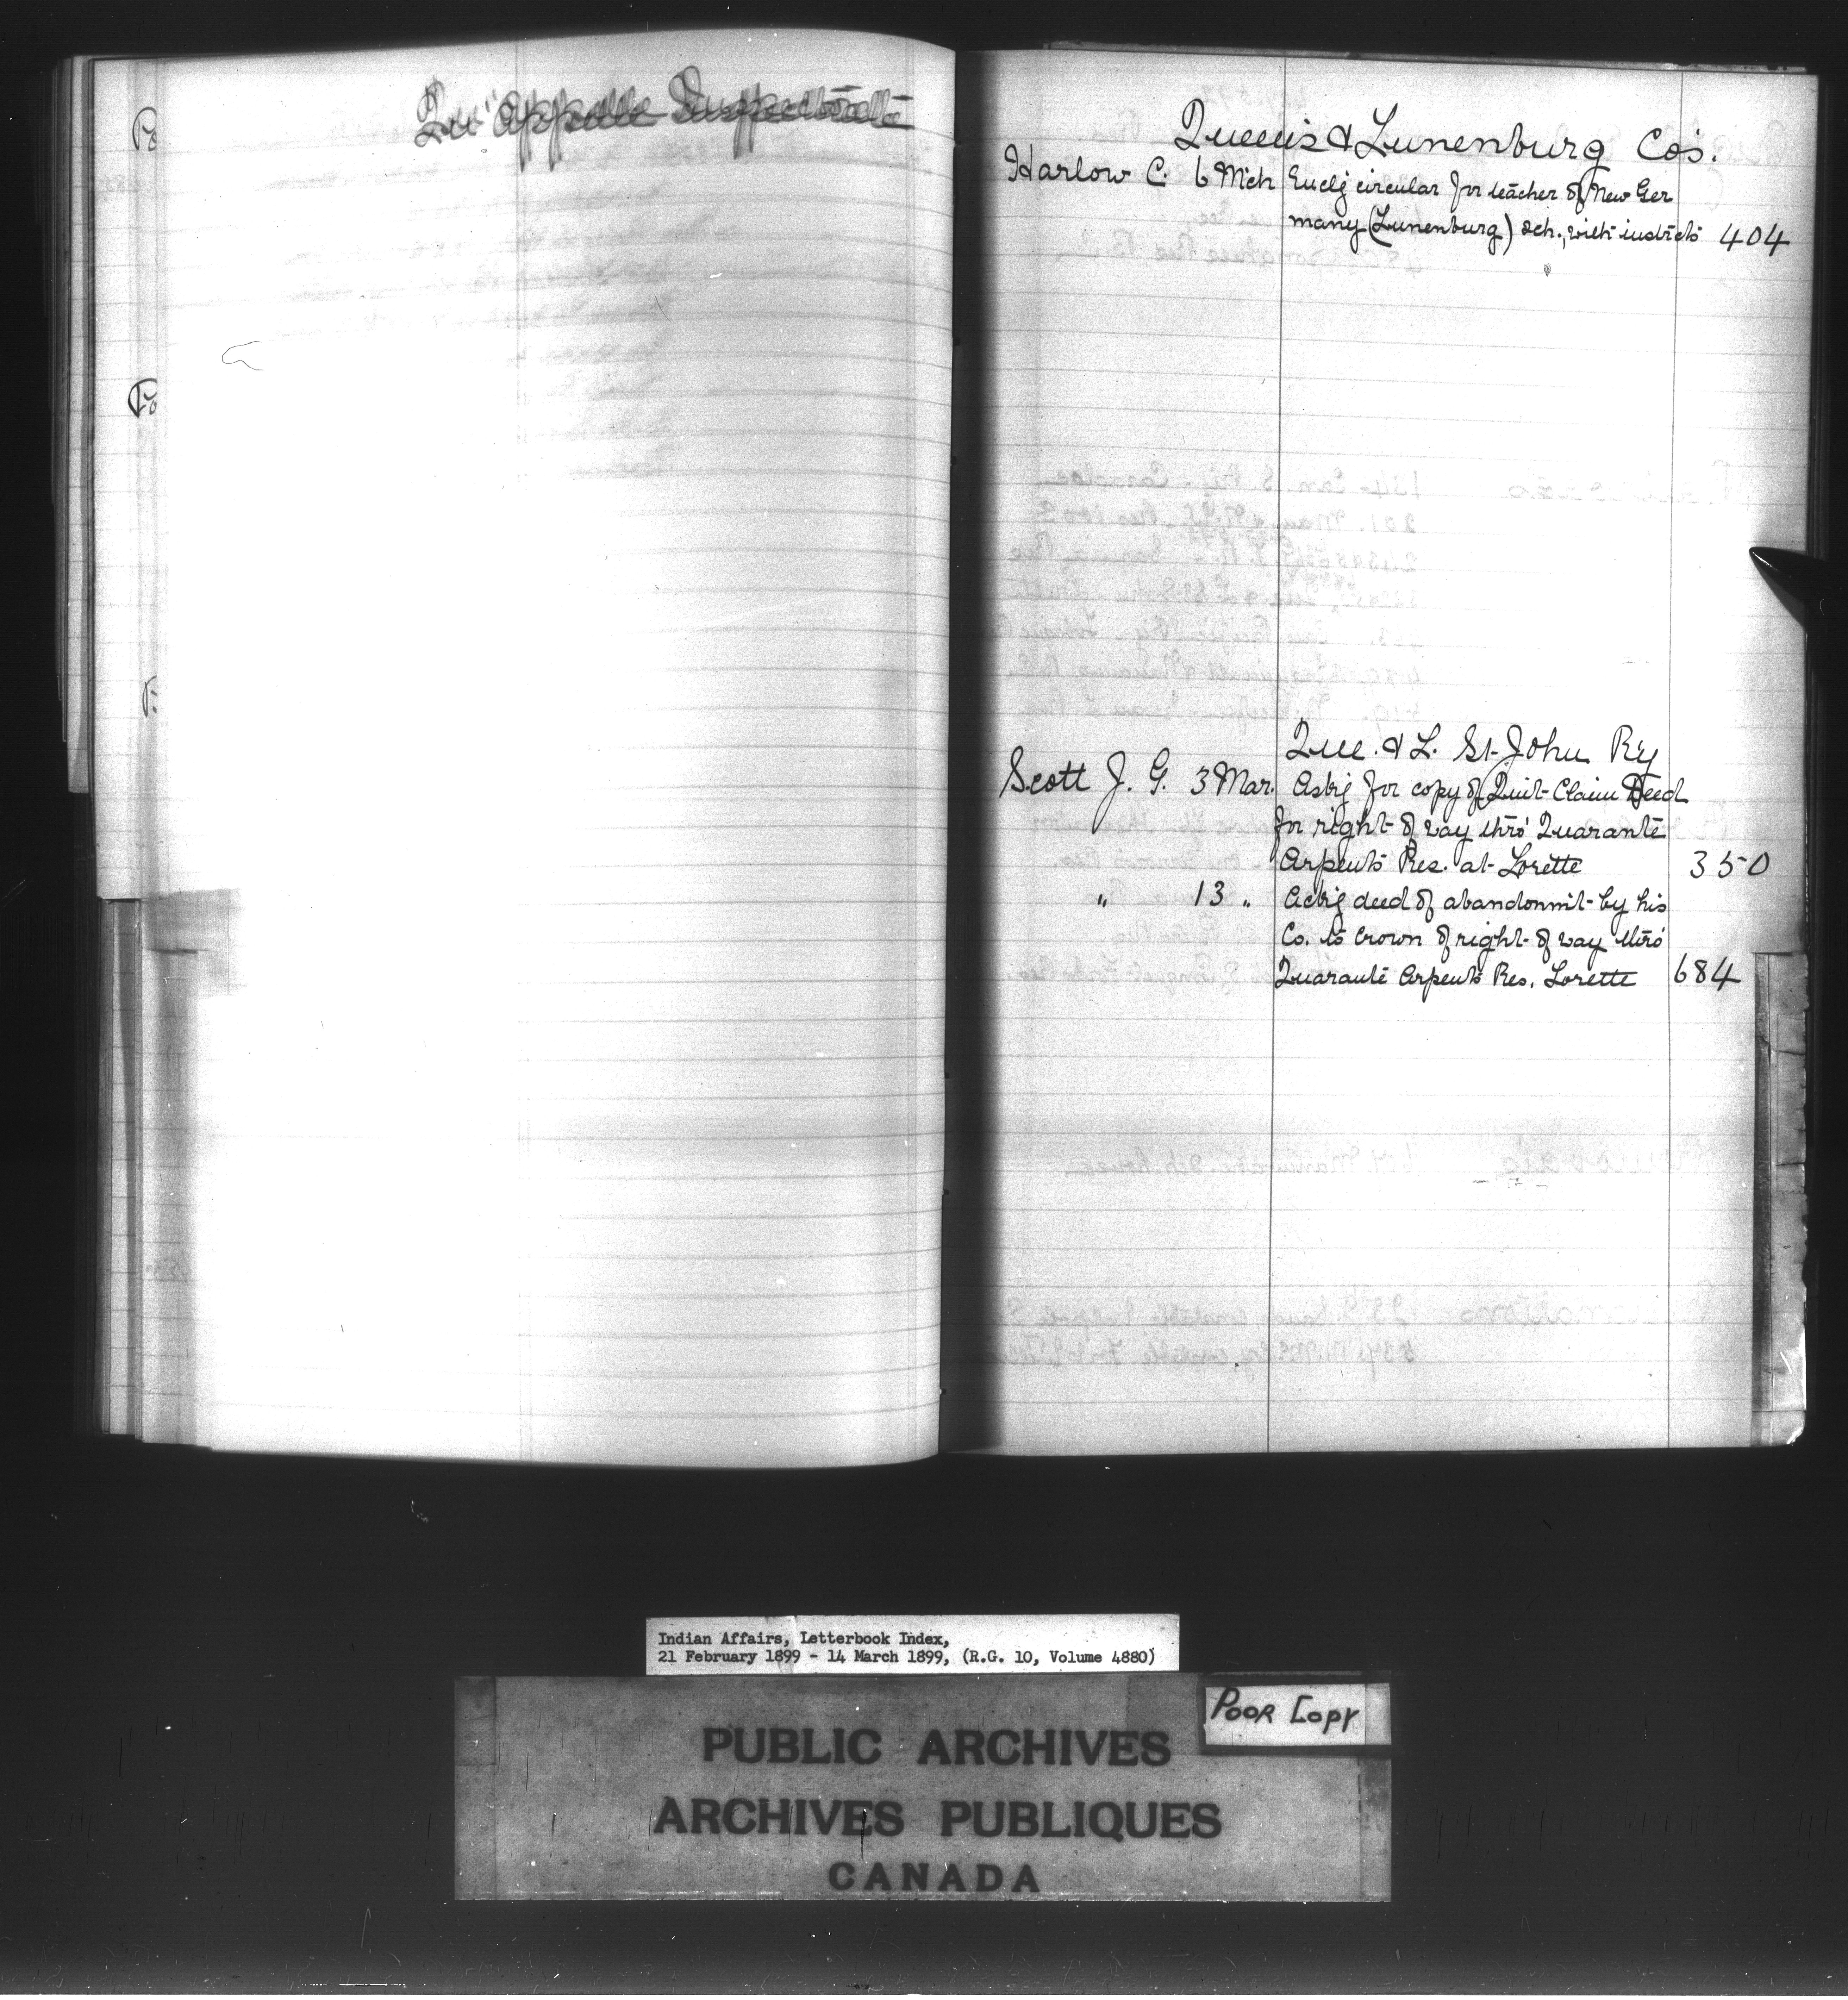 Qu'Appelle Inspectorate
Queen's & Lunenburg Co's.
Harlow C. 6 Mch Enclg circular for teacher of New Ger
many (Lunenburg) Sch., with instrcts 404
Que. & L. St. John Ry
Scott J. G. 3 Mar. Askg for copy of Quit-Claim Deed
for right of way thro' Quarante
Arpents Res. at Lorette 350
" 13 " Ackg deed of abandonmt by his
Co. to Crown of right of way thro'
Quarante Arpents Res. Lorette 684
Indian Affairs, Letterbook Index,
21 February 1899 - 14 March 1899, (R.G. 10, Volume 4880)
POOR COPY
PUBLIC ARCHIVES
ARCHIVES PUBLIQUES
CANADA